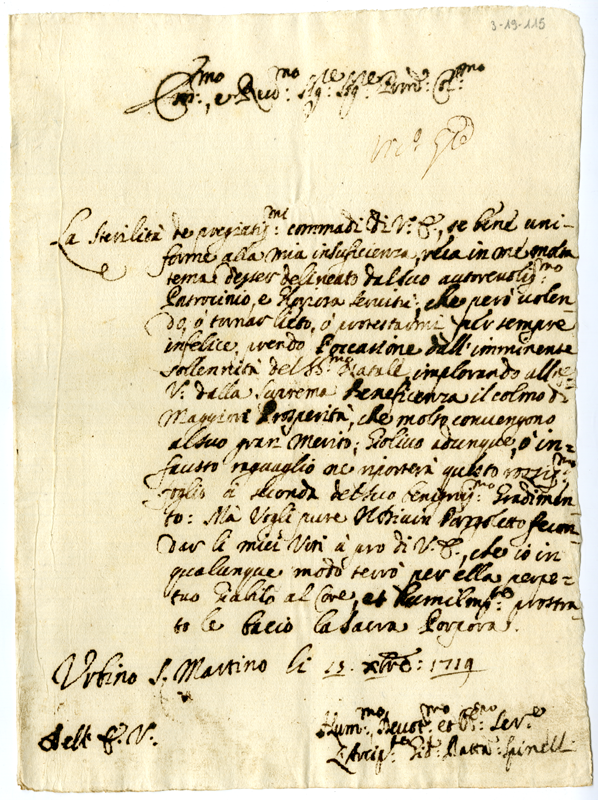 3-19-115
Em.mo, e Reu.mo Sig.re Sig.re Pron.e Col.mo
La sterilità de pregiatis.mi commadi di V.a E., se bene uni-
forme alla mia insuficienza, reca in me molta
tema d'esser delineato dal suo autoreuolis.mo
Patrocinio, e d'onora seruitù; che però uolen-
do, ò tornar lieto, ò protestarmi per sempre
infelice, prendo l'occasione dall'imminente
sollennità del SS.mo Natale, implorando all'E.
V.a dalla suprema Beneficenza il colmo di
Maggiori Prosperità, che molto conuengono
al suo gran Merito; Gioliuo adunque, ò in-
fausto raguaglio me riporterà questo rossis.mo
foglio à seconda del suo benignis.mo Gradimen-
to: Mà Vogli pure Il Diuin Pargoletto fecon-
dar li miei Voti à pro di V.a E., che io in
qualunque modo terrò per ella perpe-
tuo Giubilo al Core, et humilm.te prostra-
to le bacio la Sacra Porpora.
Urbino S. Martino li 15. Xbre: 1719
Dell' E. V.a
Hum.mo Deuot.mo et Obl.mo Ser.e
L'Arcip.te Gio: Batta: Spinelli